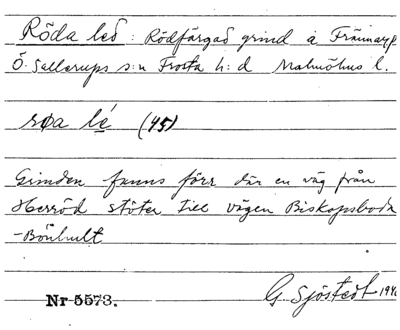 Röda led: Rödfärgad grind å Främarp
Ö. Sallerups s:n Frosta h:d Malmöhus l.
røa lé (45)
Grinden fanns förr där en väg från
Herröd stöter till vägen Biskopsboda
-Bönhult
Nr 5573. G. Sjöstedt